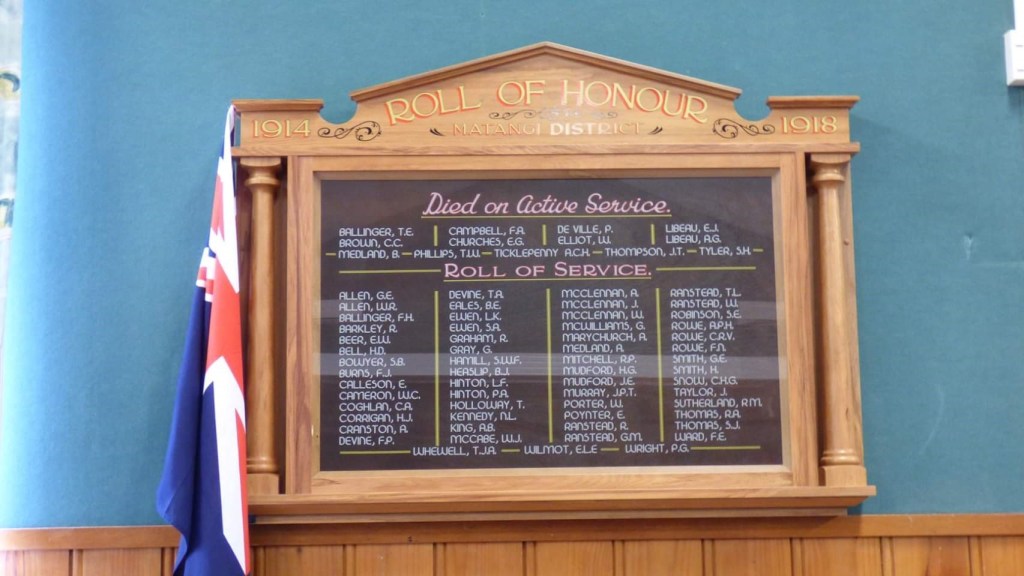 ROLL OF HONOUR
1914 MATANGI DISTRICT 1918
Died on Active Service.
BALLINGER, T.E. CAMPBELL, F.A. DE VILLE, P. LIBEAU, E.J.
BROWN, C.C. CHURCHES, E.G. ELLIOT, W. LIBEAU, A.G.
MEDLAND, B. — PHILLIPS, T.W. — TICKLEPENNY A.C.H. — THOMPSON, J.T. — TYLER, S.H.
ROLL OF SERVICE.
ALLEN, G.E. DEVINE, T.A. MCCLENNAN, A. RANSTEAD, T.L.
ALLEN, W.R. EALES, B.E. MCCLENNAN, J. RANSTEAD, W.
BALLINGER, F.H. ELWEN, L.K. MCCLENNAN, W. ROBINSON, S.E.
BARKLEY, R. ELWEN, S.A. MCWILLIAMS, G. ROWE, A.P.H.
BEER, E.W. GRAHAM, R. MARYCHURCH, A. ROWE, C.R.V.
BELL, H.D. GRAY, G. MEDLAND, A. ROWE, F.N.
BOWYER, S.B. HAMILL, S.W.F. MITCHELL, R.P. SMITH, G.E.
BURNS, F.J. HEASLIP, B.J. MUDFORD, H.G. SMITH, H.
CALLESON, E. HINTON, L.F. MUDFORD, J.E. SNOW, C.H.G.
CAMERON, W.C. HINTON, P.A. MURRAY, J.P.T. TAYLOR, J.
COGHLAN, C.A. HOLLOWAY, T. PORTER, W. SUTHERLAND, R.M.
CORRIGAN, H.J. KENNEDY, N.L. POYNTER, E. THOMAS, R.A.
CRANSTON, A. KING, A.B. RANSTEAD, R. THOMAS, S.J.
DEVINE, F.P. MCCABE, W.J. RANSTEAD, G.M. WARD, F.E.
WHEWELL, T.J.A. — WILMOT, E.L.E — WRIGHT, P.G.